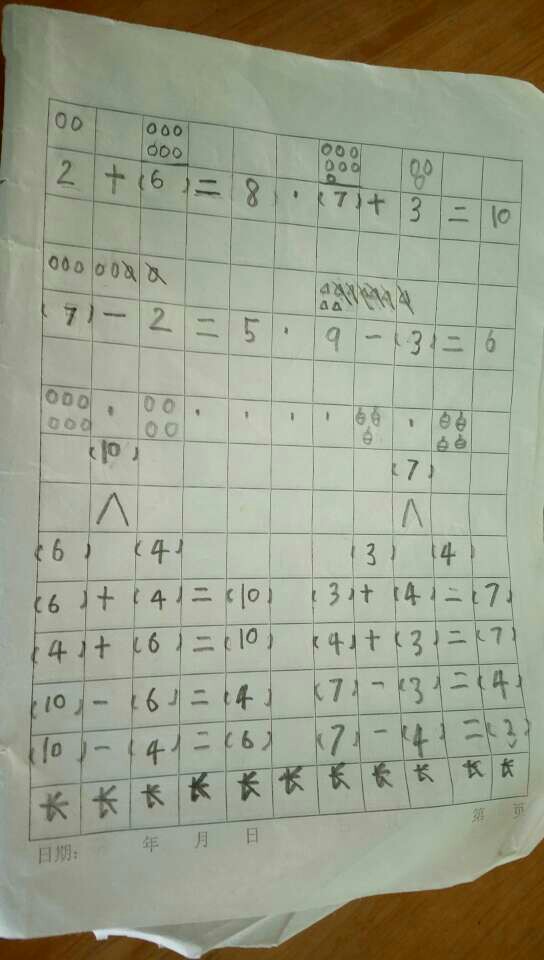 2 + (6) = 8 · (7) + 3 = 10
(7) - 2 = 5 · 9 - (3) = 6
(10) (7)
(6) (4) (3) (4)
(6) + (4) = (10) (3) + (4) = (7)
(4) + (6) = (10) (4) + (3) = (7)
(10) - (6) = (4) (7) - (3) = (4)
(10) - (4) = (6) (7) - (4) = (3)
长 长 长 长 长 长 长 长 长 长 长
日期: 年 月 日 第 页